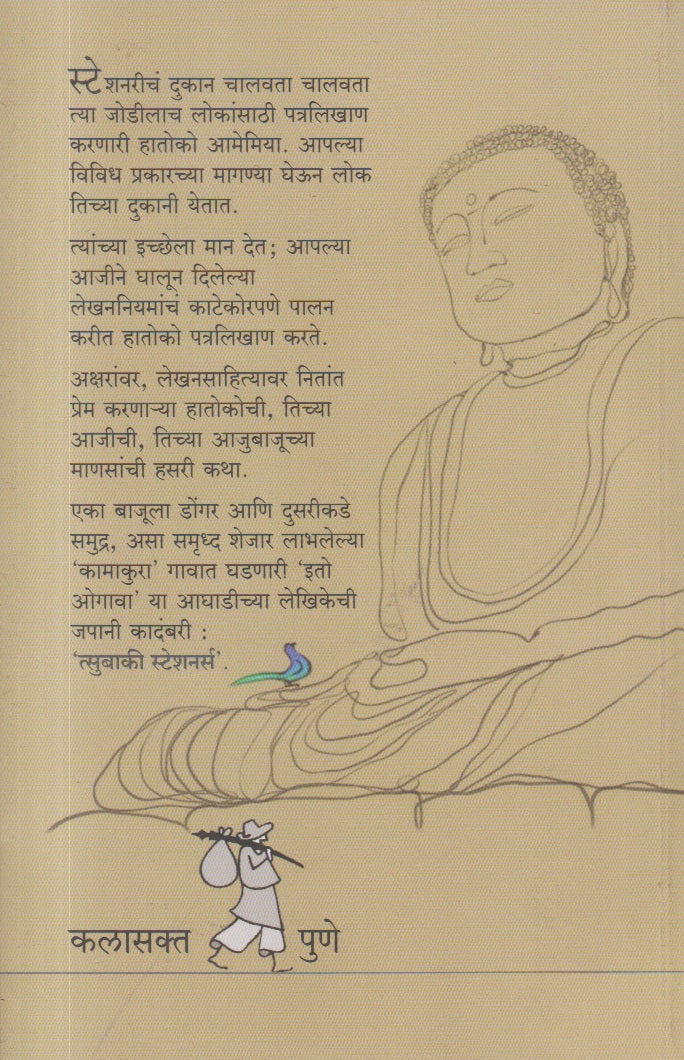 स्टेशनरीचं दुकान चालवता चालवता
त्या जोडीलाच लोकांसाठी पत्रलिखाण
करणारी हातोको आमेमिया. आपल्या
विविध प्रकारच्या मागण्या घेऊन लोक
तिच्या दुकानी येतात.
त्यांच्या इच्छेला मान देत; आपल्या
आजीने घालून दिलेल्या
लेखननियमांचं काटेकोरपणे पालन
करीत हातोको पत्रलिखाण करते.
अक्षरांवर, लेखनसाहित्यावर नितांत
प्रेम करणाऱ्या हातोकोची, तिच्या
आजीची, तिच्या आजुबाजूच्या
माणसांची हसरी कथा.
एका बाजूला डोंगर आणि दुसरीकडे
समुद्र, असा समृध्द शेजार लाभलेल्या
‘कामाकुरा’ गावात घडणारी ‘इतो
ओगावा’ या आघाडीच्या लेखिकेची
जपानी कादंबरी :
‘त्सुबाकी स्टेशनर्स’.
कलासक्त पुणे